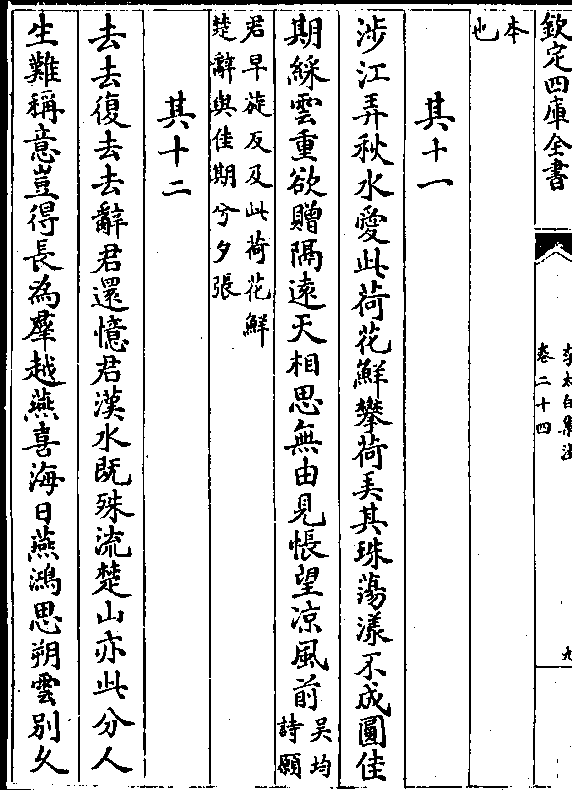 欽定四庫全書
李太白集注
卷二十四
九
本
也
其十一
涉江弄秋水愛此荷花鮮攀荷弄其珠蕩漾不成圓佳
期綵雲重欲贈隔遠天相思無由見悵望涼風前
吳均
詩願
君早旋反及此荷花鮮
楚辭與佳期兮夕張
其十二
去去復去去辭君還憶君漢水既殊流楚山亦此分人
生難稱意豈得長為羣越燕喜海日燕鴻思朔雲別久